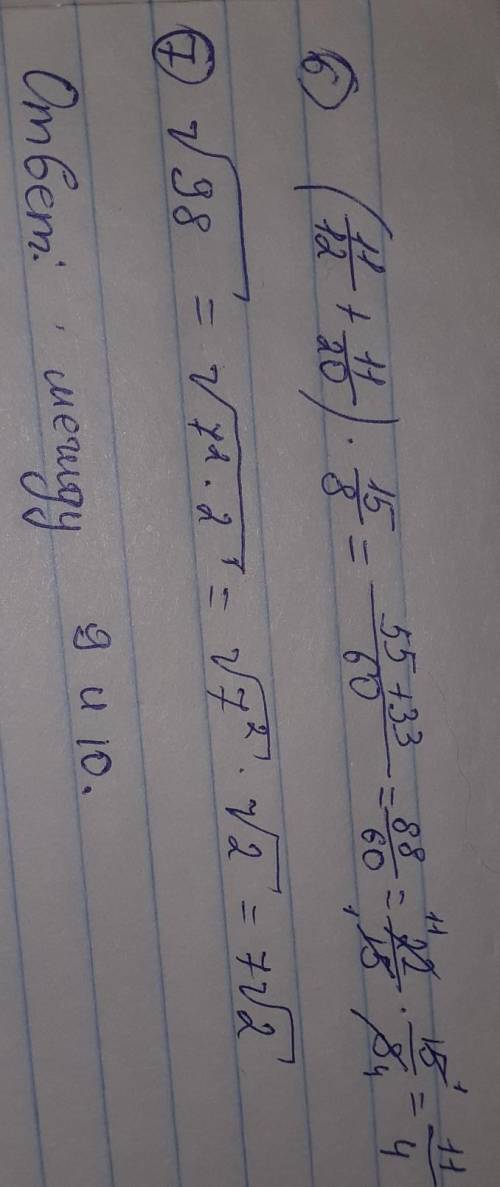 ⑥ (11/12 + 11/20) · 15/8 = 55+33/60 = 88/60 = 22/15 · 15/8 = 11/4
⑦ √98 = √7² · 2 = √7² · √2 = 7√2
Ответ: между 9 и 10.